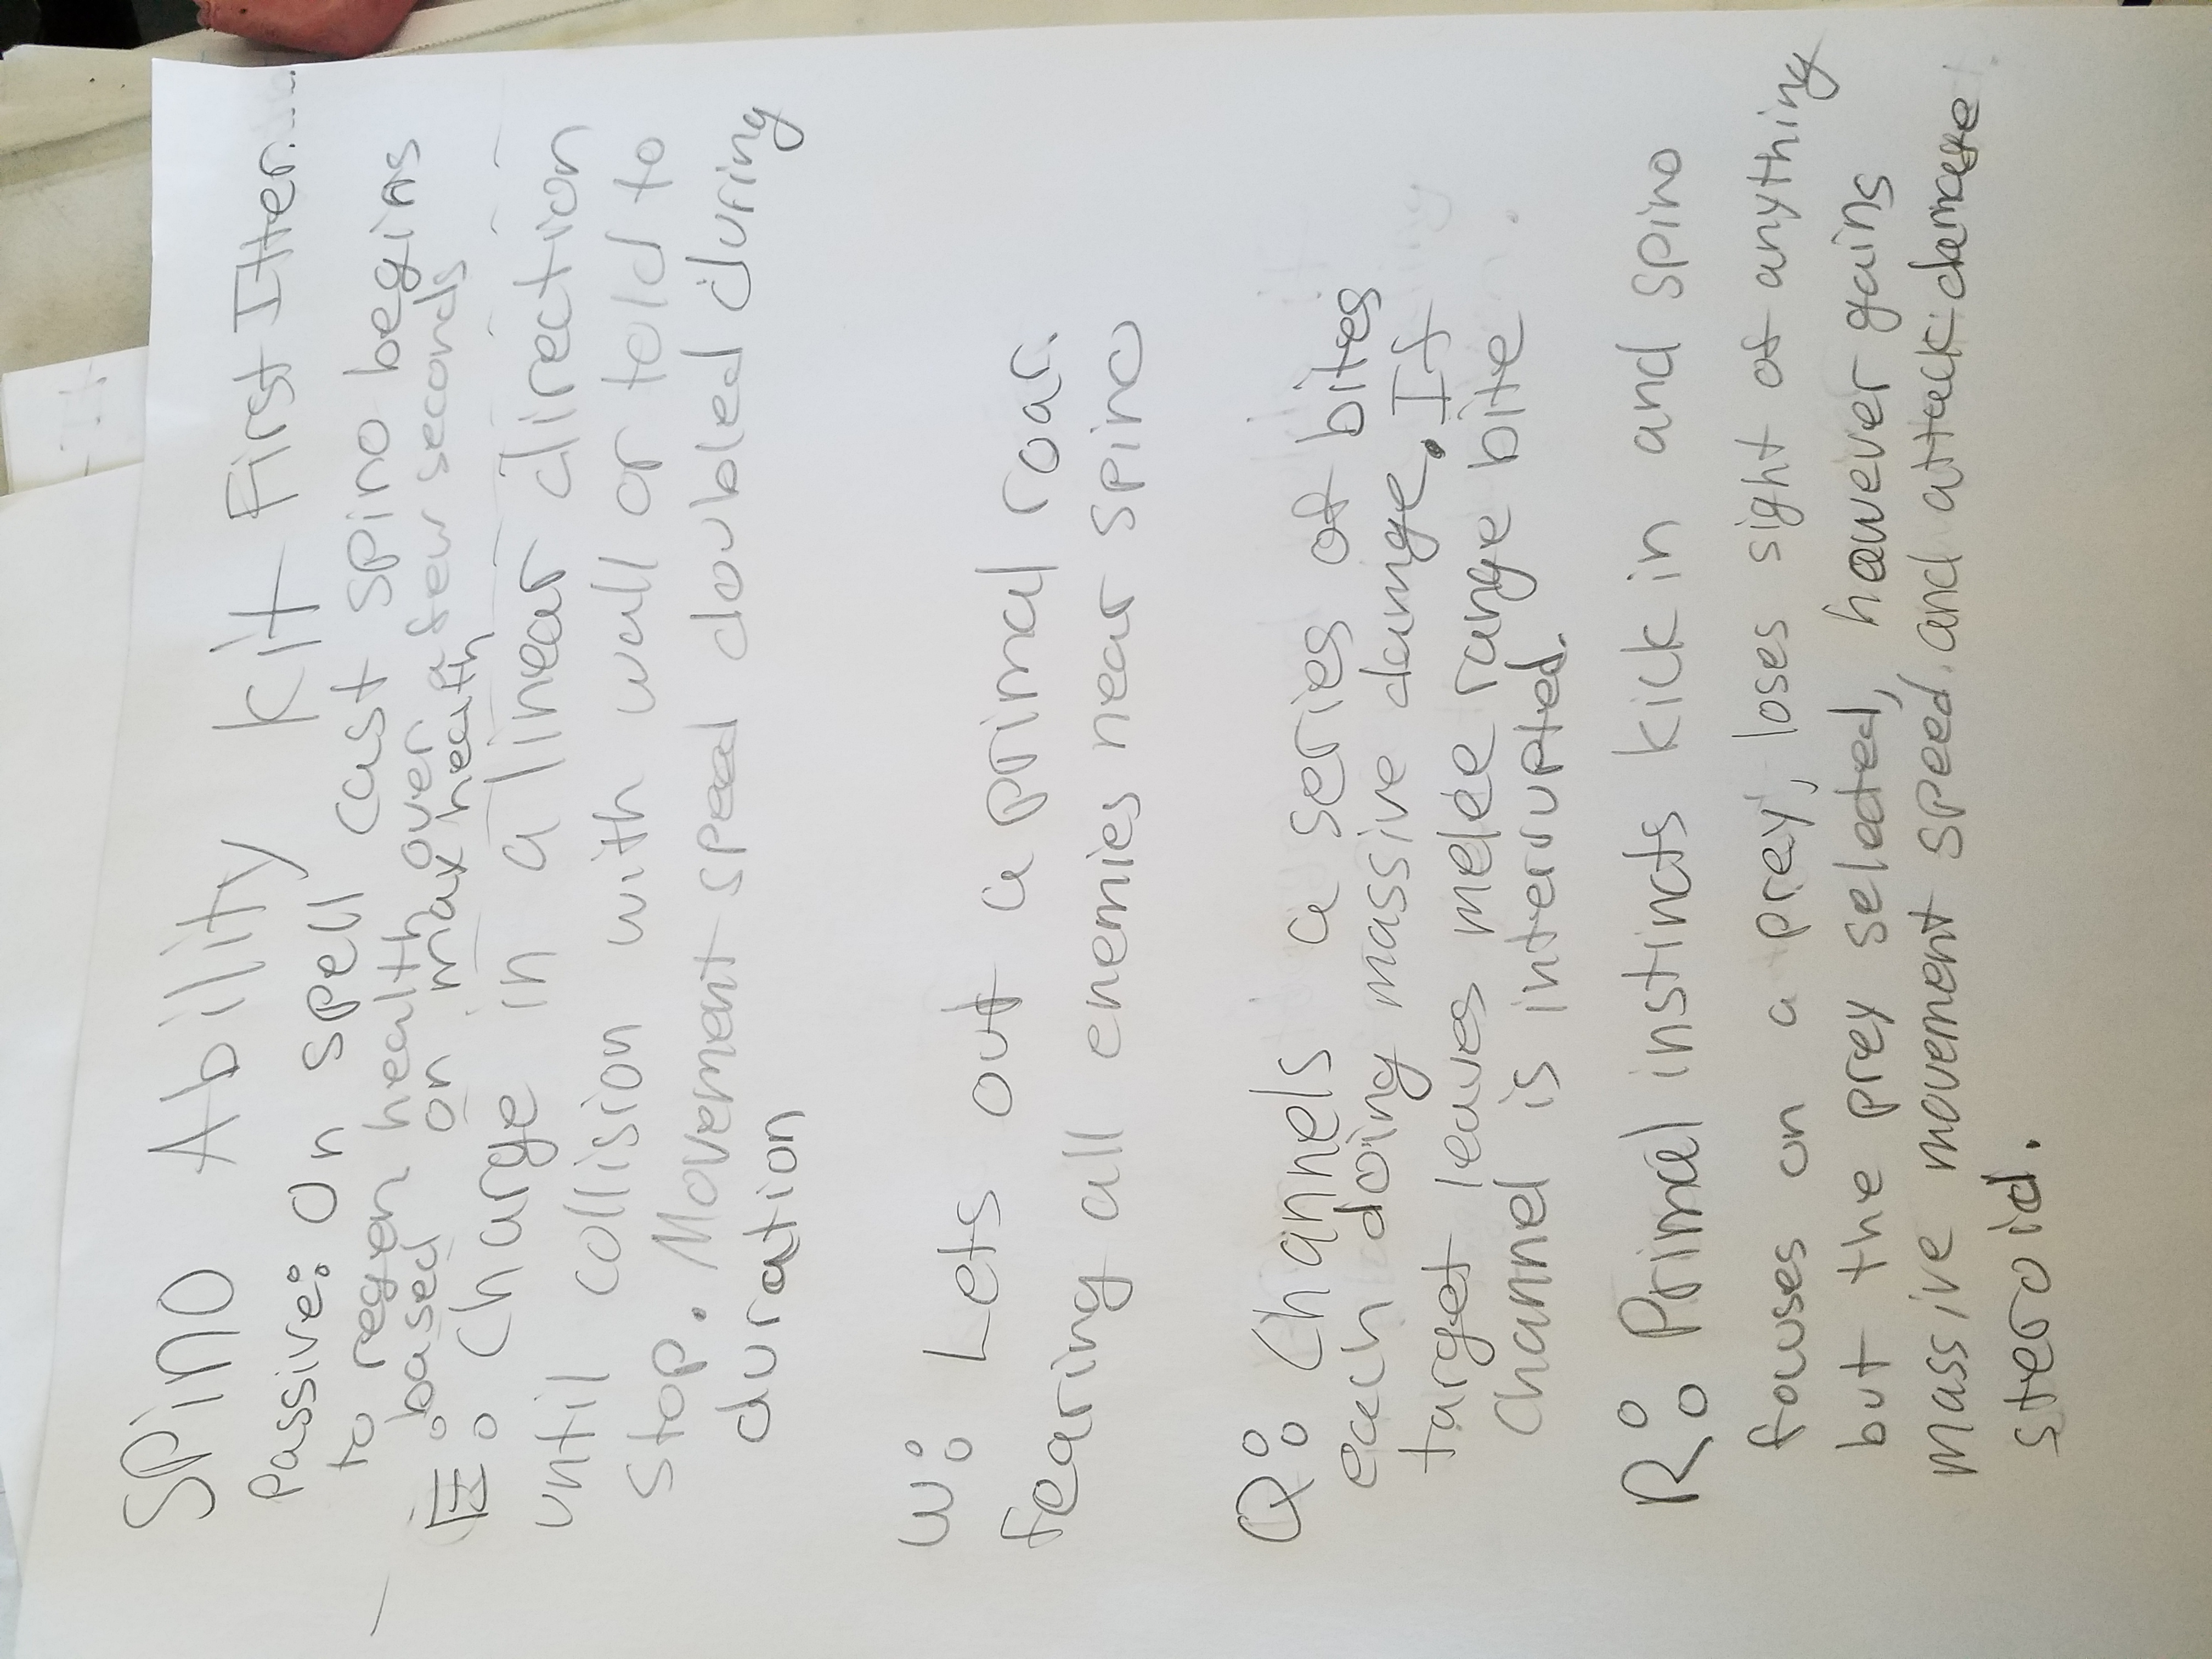 SPino Ability Kit First Itter.....
Passive: On spell cast spino begins
to regen health over a few seconds
based on max health
E: Charge in a linear direction
until collision with wall or told to
stop. Movement speed doubled during
duration
W: Lets out a primal roar.
fearing all enemies near spino
Q: Channels a series of bites
each doing massive damge. If
target leaves melee range bite
Channel is interrupted.
R: Primal instincts kick in and spino
focuses on a prey, loses sight of anything
but the prey selected, however gains
massive movement speed and attack damage
steroid.